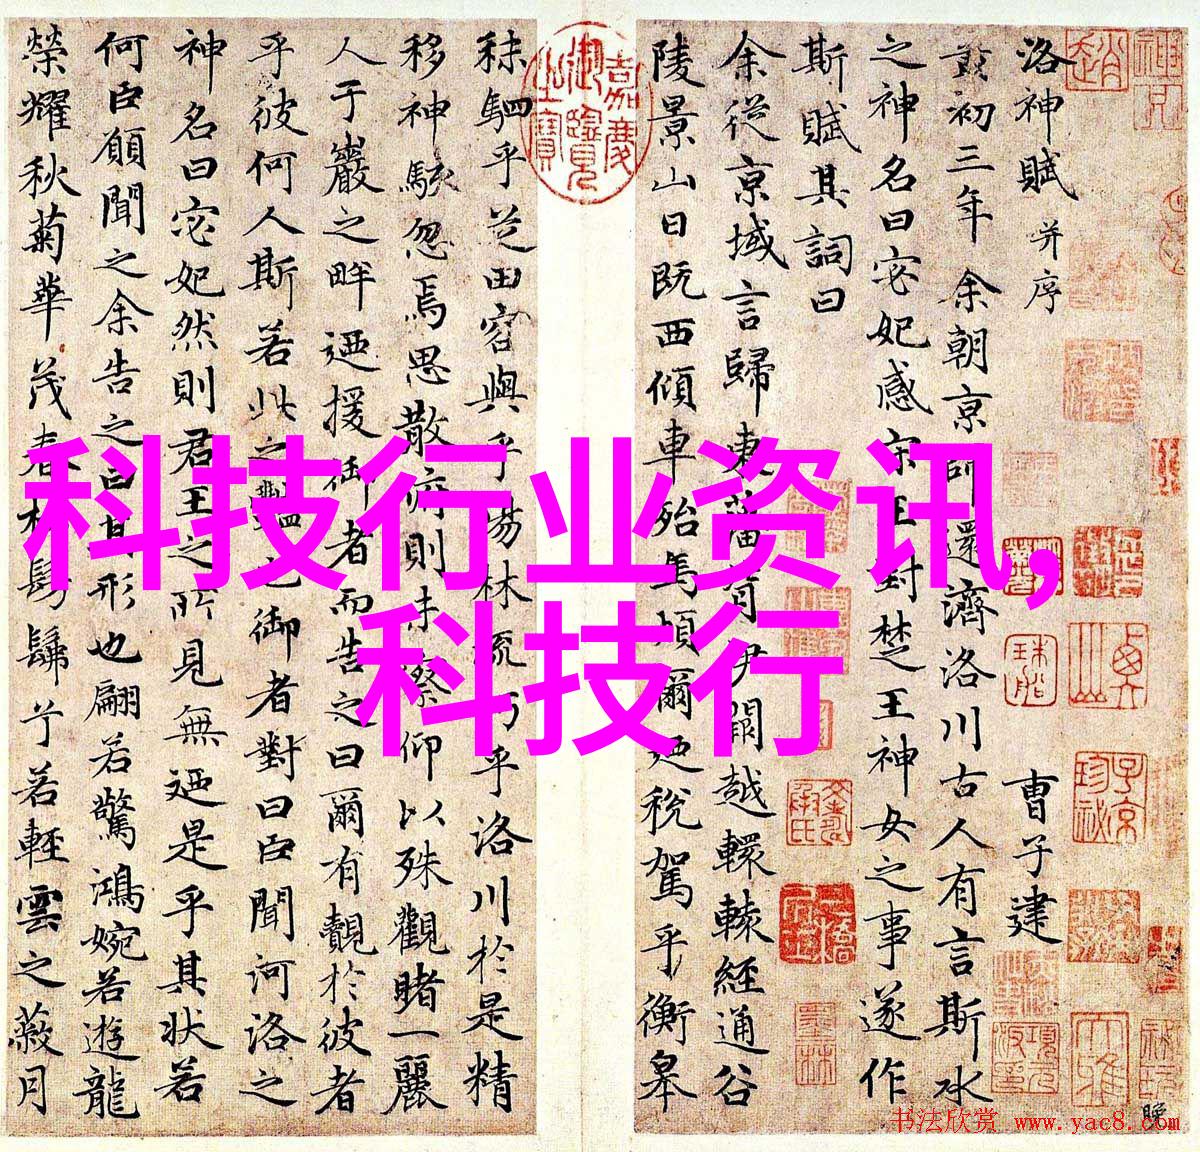 洛神賦 并序 曹子建
黃初三年余朝京師還濟洛川古人有言斯水
之神名曰宓妃感宋玉對楚王神女之事遂作
斯賦其詞曰
余從京域言歸東藩背伊闕越轘轅經通谷
陵景山日既西傾車殆馬煩爾迺稅駕乎蘅皋
嘉慶御覽之寶
秣駟乎芝田容與乎楊林流眄乎洛川於是精
移神駭忽焉思散俯則未察仰以殊觀睹一麗
人于巖之畔迺援御者而告之曰爾有覿於彼者
乎彼何人斯若此之豔也御者對曰臣聞河洛之
神名曰宓妃然則君王之所見無迺是乎其狀若
何臣願聞之余告之曰其形也翩若驚鴻婉若遊龍
榮耀秋菊華茂春松髣髴兮若輕雲之蔽月
科技行业资讯,
科技行
书法欣赏 www.yac8.com